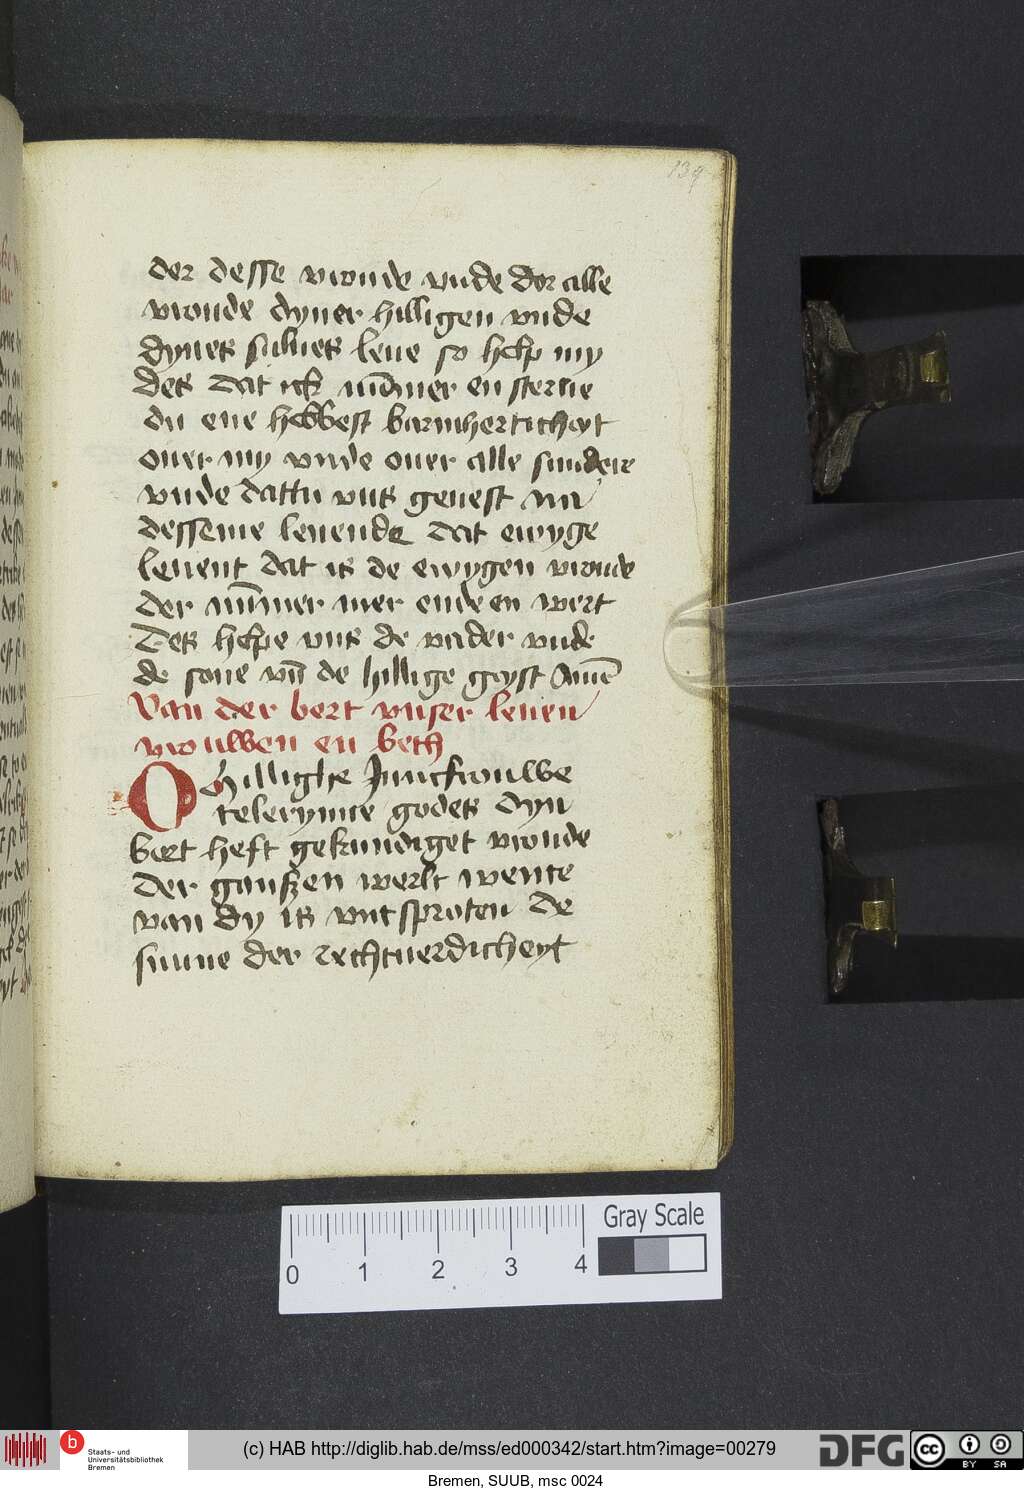 139
der desse vroude vnde dor alle
vroude dyner hilligen vnde
dynes sulues leue so help my
des dat ick nūmer en sterue
du ene hebbest barmherticheyt
ouer my vnde ouer alle sundere
vnde dattu vns geuest na
desseme leuende dat ewyge
leuent dat is de ewygen vroude
der nūmer mer ende en wert
Des helpe vns de vader vnde
de sone vn̄ de hillige geyst Amē
Van der bort vnser leuen
vrouwen en beth
O Hillighe Juncfrouwe
telerynne godes dyn
bort heft gekundiget vroude
der ganszen werlt wente
van dy is vntsproten de
sunne der rechtuerdicheyt
Gray Scale
0 1 2 3 4
b Staats- und
Universitätsbibliothek
Bremen
(c) HAB http://diglib.hab.de/mss/ed000342/start.htm?image=00279
DFG
cc BY SA
Bremen, SUUB, msc 0024